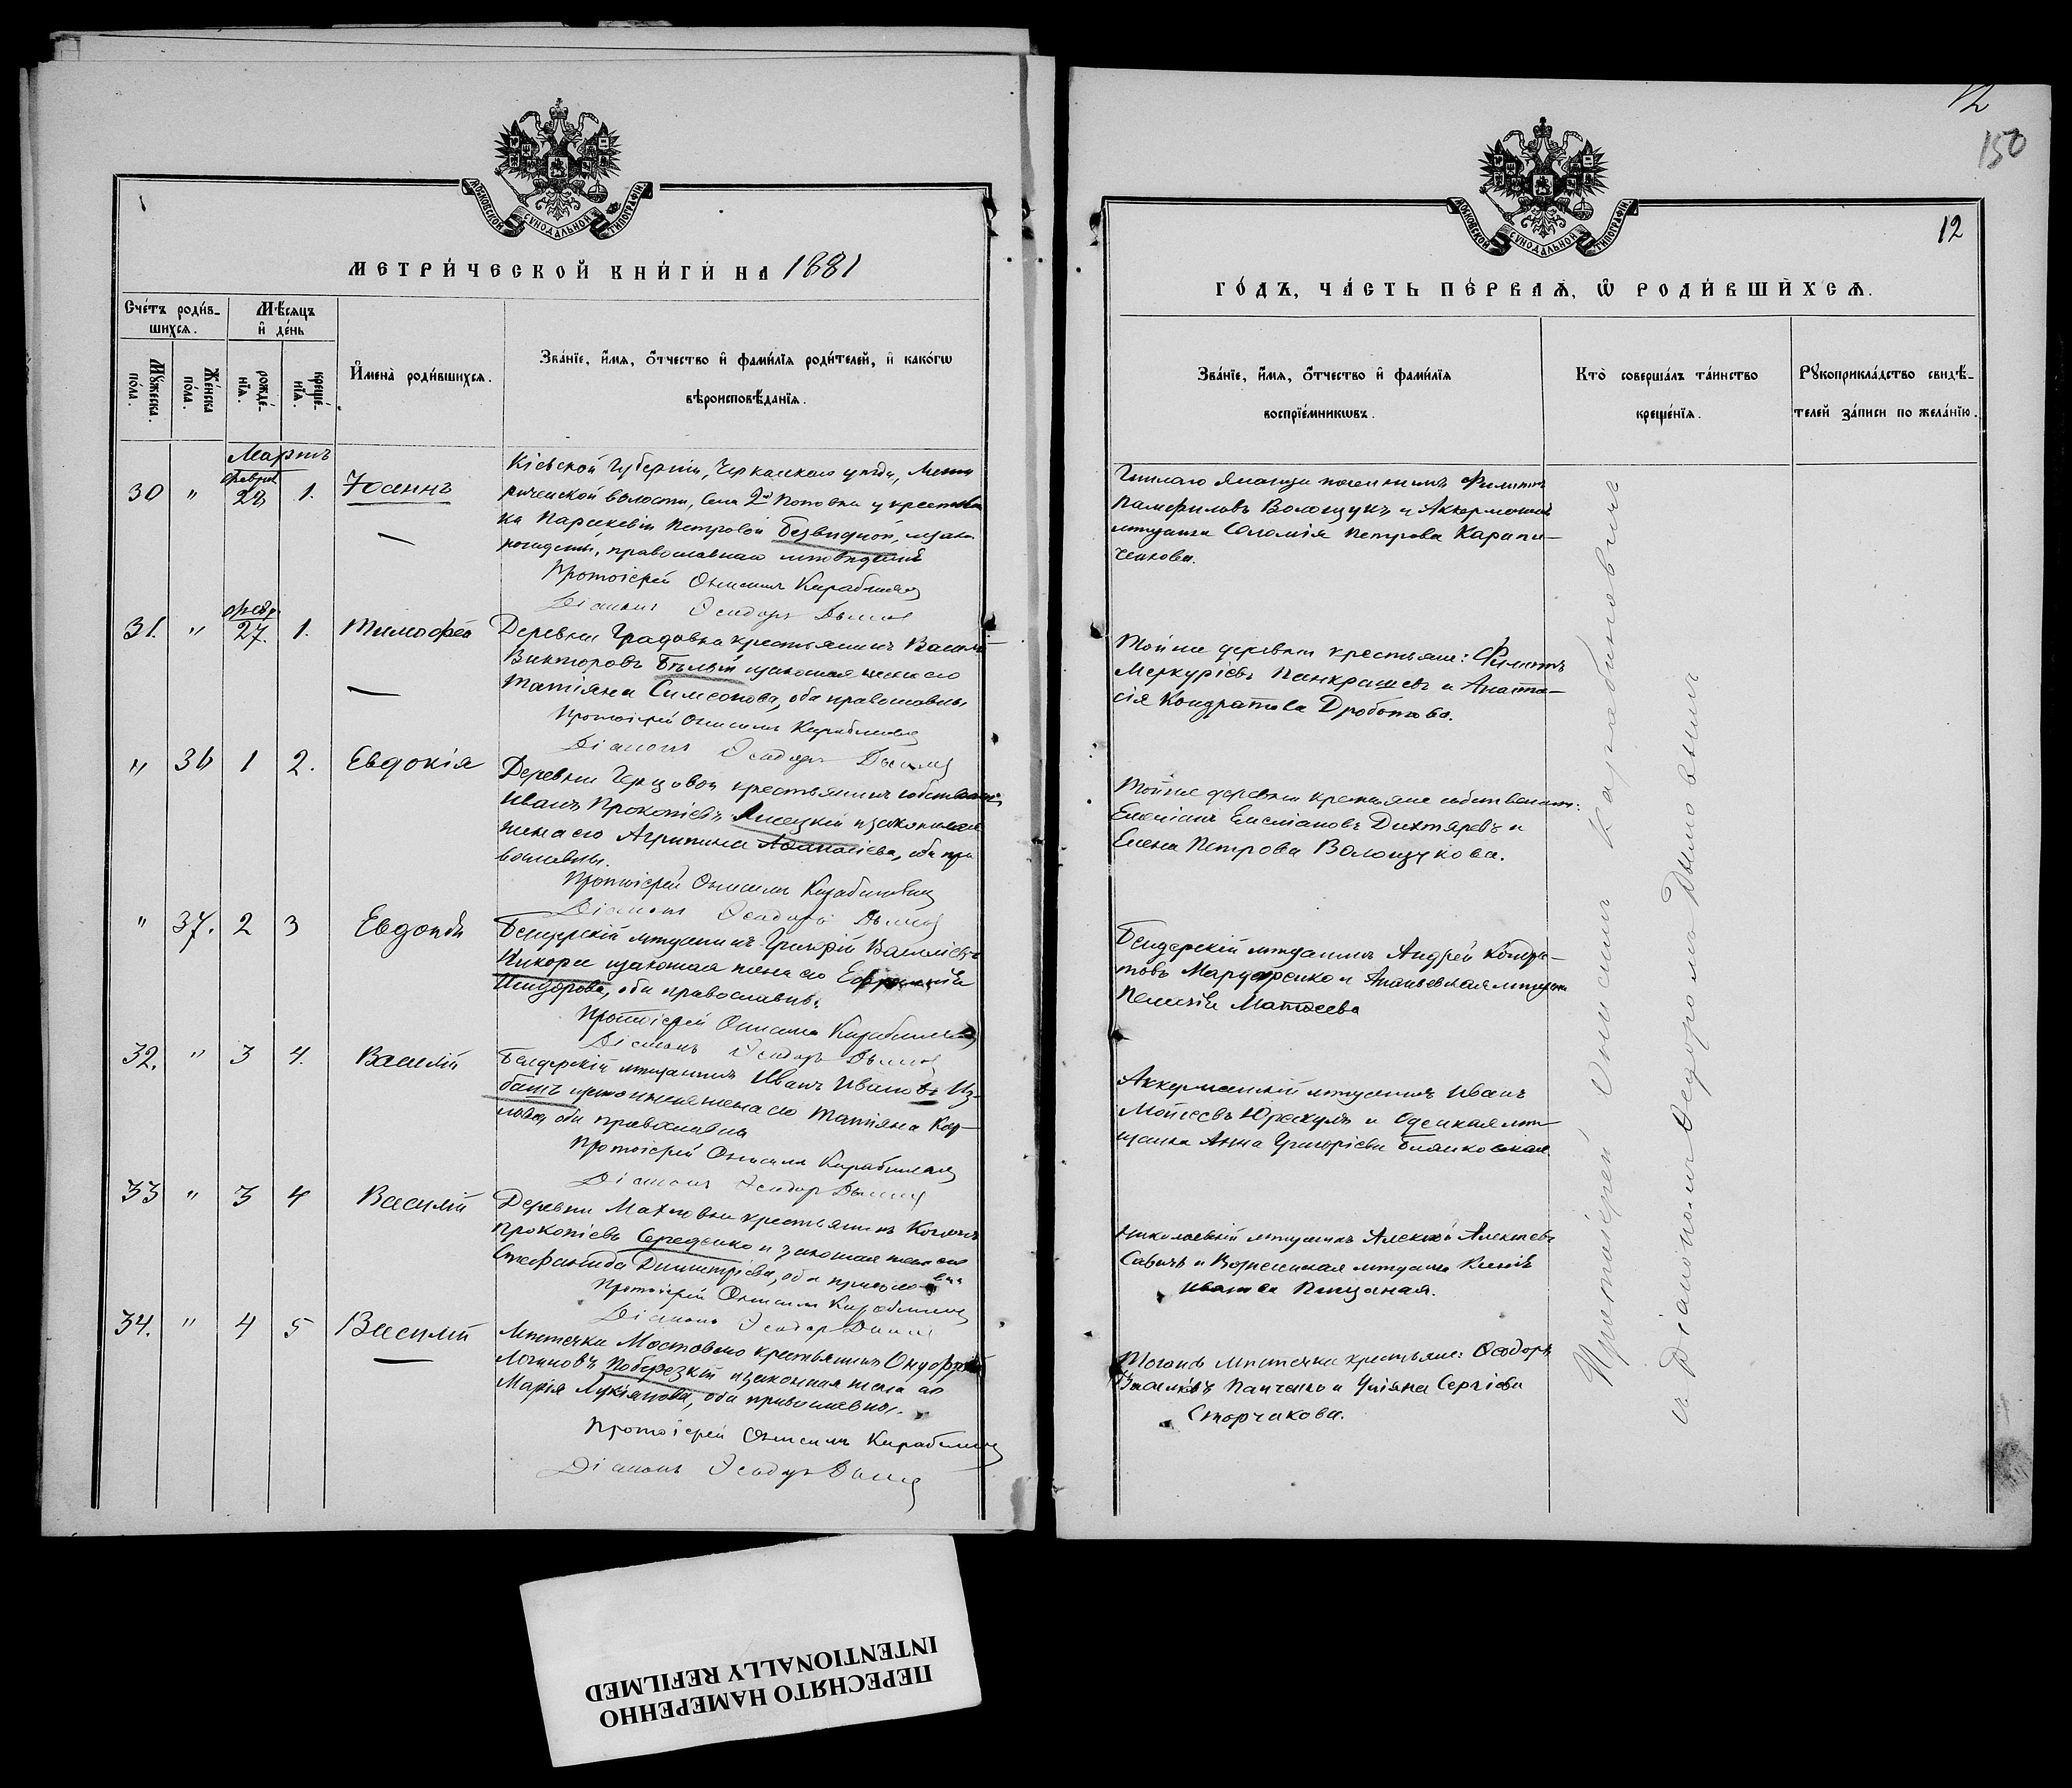 МОСКОВСКОЙ СУНОДАЛЬНОЙ ТИПОГРАФІИ
МЕТРИЧЕСКОЙ КНИГИ НА 1881
Счетъ родив-
шихся.
Мѣсяцъ
и день
Мужеска
пола.
Женска
пола.
рожде-
нія.
креще-
нія.
Имена родившихся.
Званіе, имя, отчество и фамилія родителей, и какогω
вѣроисповѣданія.
Мартъ
30 " Февра 28 1. Іоаннъ
Кіевской Губерніи, Черкаскаго уѣзда,
волости, Села 2й Поповки у крестьян
ка Параскевія Петровой Безвидной,
рожденный, православнаго
Протоіерей Онисимъ Карабиновичъ
Діаконъ Ѳеодоръ Дымовъ
31. " февр. 27. 1. Тимофей
Деревни Градовки крестьянинъ Василій
Викторовъ Бѣлый изаконная жена его
Татіяна Симеонова, оба православны
Протоіерей Онисимъ Карабиновичъ
Діаконъ Ѳеодоръ Дымовъ
" 36 1 2. Евдокія
Деревни крестьянинъ собственникъ
Иванъ Прокопіевъ изаконная
жена его Агрипина Аѳанасіева, оба пра
вославны.
Протоіерей Онисимъ Карабиновичъ
Діаконъ Ѳеодоръ Дымовъ
" 37. 2 3 Евдокія
Бендерскій мѣщанинъ Григорій Василіевъ
изаконная жена его
оба православны
Протоіерей Онисимъ Карабиновичъ
Діаконъ Ѳеодоръ Дымовъ
32. " 3 4. Василій
Бендерскій мѣщанинъ Иванъ Ивановъ Из-
башъ изаконная жена его Татіяна Кар-
пова, оба православны
Протоіерей Онисимъ Карабиновичъ
Діаконъ Ѳеодоръ Дымовъ
33 " 3 4 Василій
Деревни крестьянинъ
Прокопіевъ Середенко и законная жена его
Стефанида Димитріева, оба православны
Протоіерей Онисимъ Карабиновичъ
Діаконъ Ѳеодоръ Дымовъ
34. " 4 5 Василій
Мѣстечка Мостового крестьянинъ Онуфрій
Логиновъ Поберезкій изаконная жена его
Марія Лукіянова, оба православны.
Протоіерей Онисимъ Карабиновичъ
Діаконъ Ѳеодоръ Дымовъ
12
150
12
МОСКОВСКОЙ СУНОДАЛЬНОЙ ТИПОГРАФІИ
ГОДЪ, ЧАСТЬ ПЕРВАЯ, Ѡ РОДИВШИХСЯ.
Званіе, имя, отчество и фамилія
воспріемникωвъ.
Кто совершалъ таинство
крещенія.
Рукоприкладство свидѣ-
телей записи по желанію.
Филиппъ
Памфиловъ Волощукъ и Аккерманская
мѣщанка Соломія Петрова Карпи-
ченкова.
Тойже деревни крестьяне: Филиппъ
Меркуріевъ Панкрашевъ и Анаста-
сія Кондратова Дроботова.
Тойже деревни крестьяне собственники:
Емеліанъ Емеліановъ Дихтяревъ и
Елена Петрова Волощукова.
Бендерскій мѣщанинъ Андрей Кондра-
товъ Мардаренко и Ананьевская мѣщанка
Пелагія Матѳеева
Аккерманскій мѣщанинъ Иванъ
Мойсеевъ Юрекулъ и Одесская мѣ-
щанка Анна Григоріева
Николаевскій мѣщанинъ Алексѣй Алексѣевъ
Савичъ и Вознесенская мѣщанка Ксенія
Иванова Пищаная.
Тогоже мѣстечка крестьяне: Ѳеодоръ
Панченко и Уліяна Сергіева
Сторчакова.
Протоіерей Онисимъ Карабиновичъ
съ Діакономъ Ѳеодоромъ Дымовымъ
ПЕРЕСНЯТО НАМЕРЕННО
INTENTIONALLY REFILMED